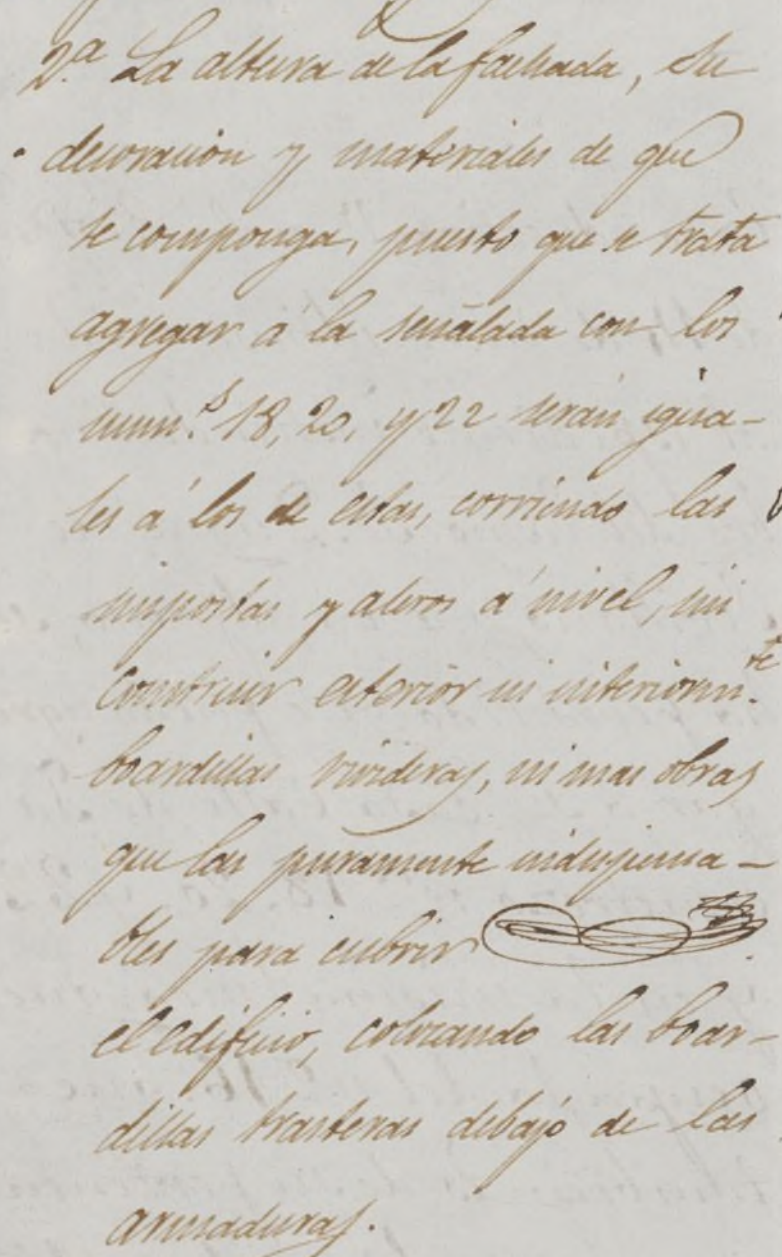 2.ª La altura de la fachada, su
decoracion y materiales de que
se componga, puesto que se trata
agregar a la señalada con los
num.s 18, 20, y 22 serán igua-
les á los de estas, corriendo las
impostas y aleros á nivel, sin
construir exterior ni interiorm.te
boardillas vivideras, ni mas obras
que las puramente indispensa-
bles para cubrir
el edificio, colocando las boar-
dillas trasteras debajo de las
armaduras.